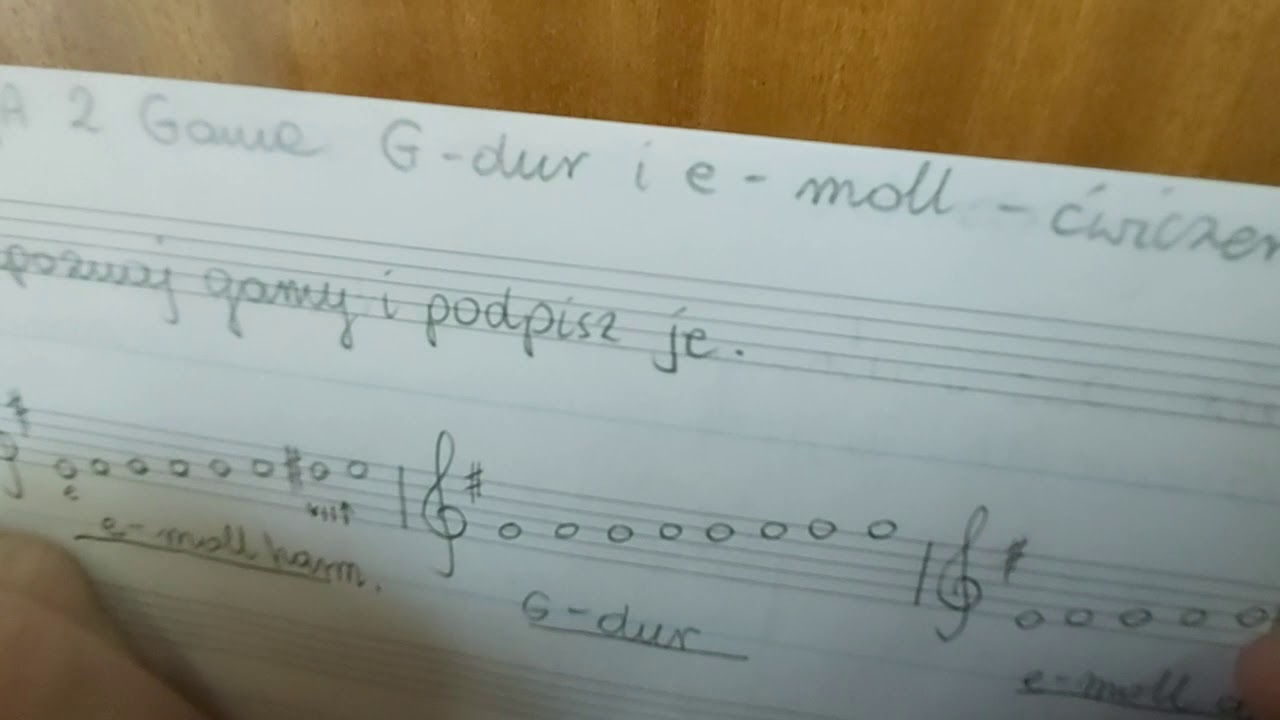 A 2 Gama G-dur i e-moll - ćwiczen
poznaj gamy i podpisz je.
e
e-moll harm.
G-dur
e-moll